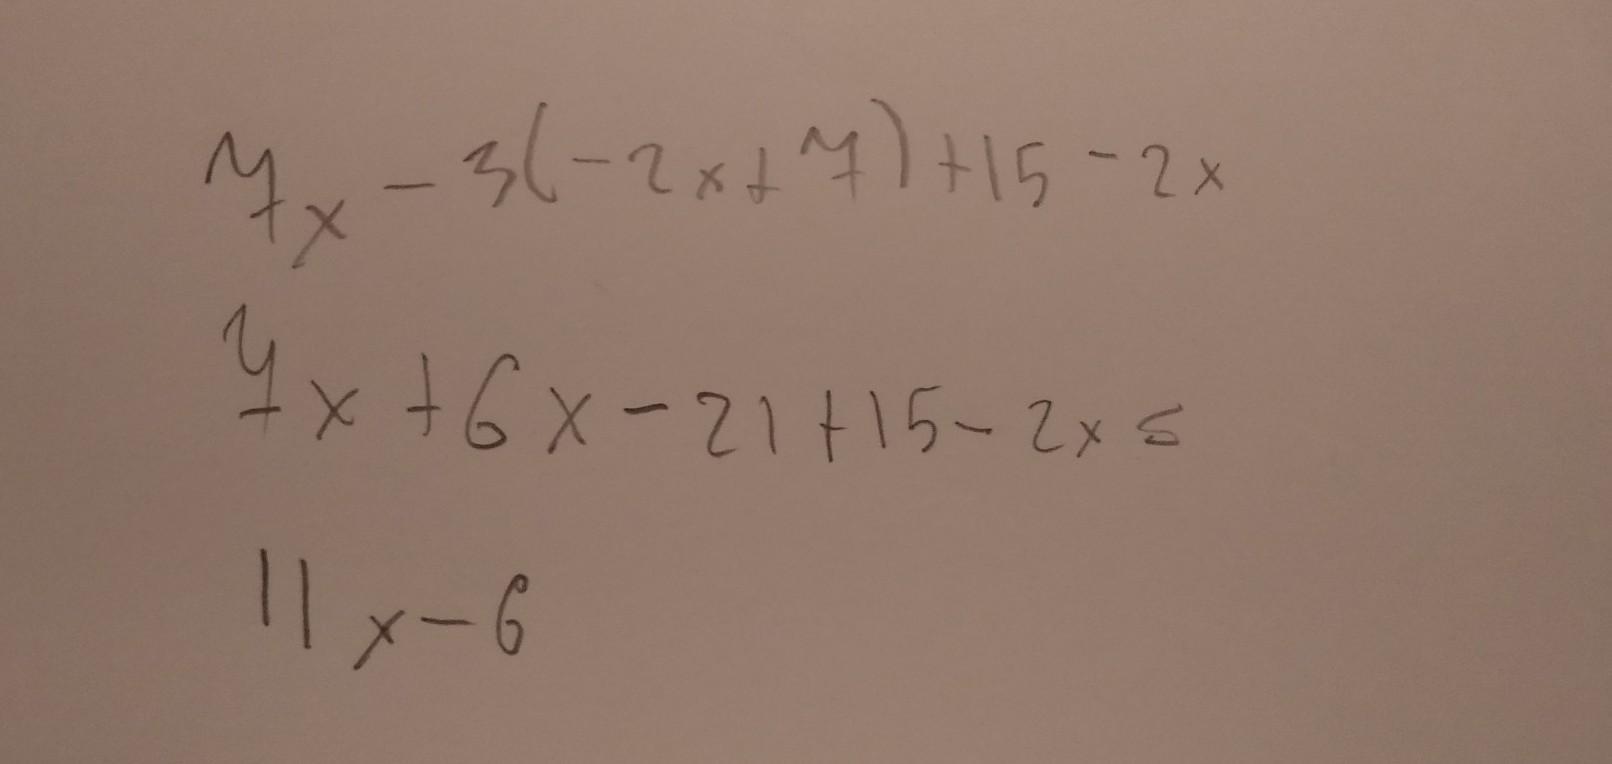 7x - 3(-2x+7)+15-2x
7x +6x-21+15-2x=
11x-6